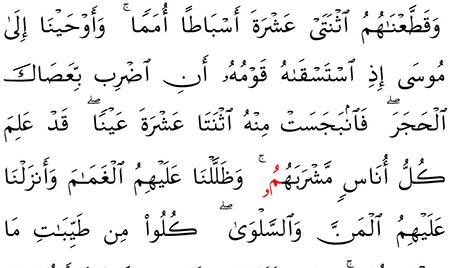 وَقَطَّعْنَٰهُمُ ٱثْنَتَىْ عَشْرَةَ أَسْبَاطًا أُمَمًا ۚ وَأَوْحَيْنَا إِلَىٰ
مُوسَىٰ إِذِ ٱسْتَسْقَىٰهُ قَوْمُهُۥ أَنِ ٱضْرِب بِّعَصَاكَ
ٱلْحَجَرَ ۖ فَٱنۢبَجَسَتْ مِنْهُ ٱثْنَتَا عَشْرَةَ عَيْنًا ۖ قَدْ عَلِمَ
كُلُّ أُنَاسٍ مَّشْرَبَهُمُۥ ۚ وَظَلَّلْنَا عَلَيْهِمُ ٱلْغَمَٰمَ وَأَنزَلْنَا
عَلَيْهِمُ ٱلْمَنَّ وَٱلسَّلْوَىٰ ۖ كُلُوا۟ مِن طَيِّبَٰتِ مَا